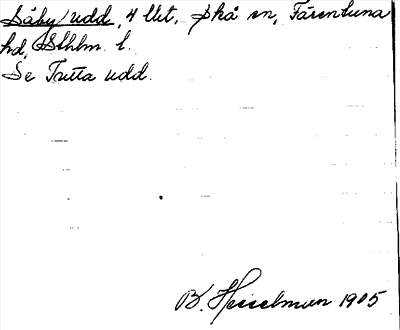 Säby udd, 4 llit, Skå sn, Färentuna
hd, Sthlm l.
Se Trutta udd.
B. Hesselman 1905